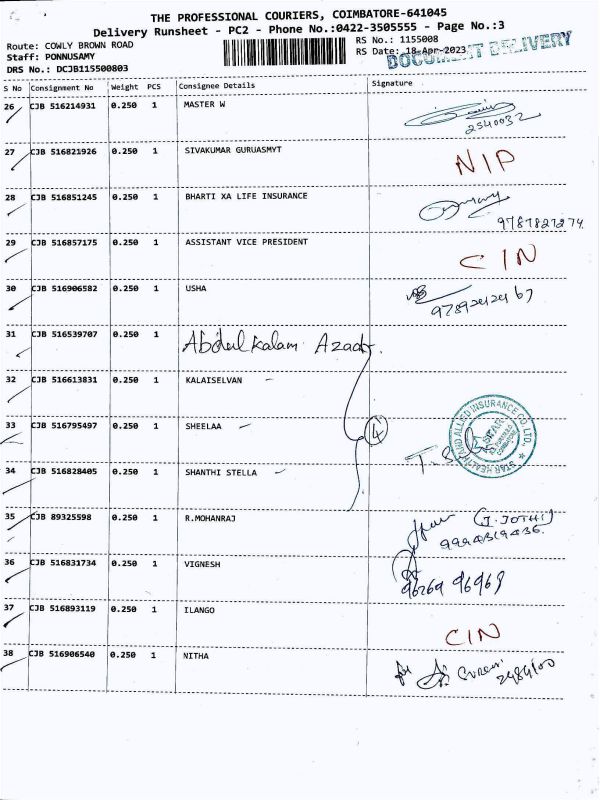 THE PROFESSIONAL COURIERS, COIMBATORE-641045
Delivery Runsheet - PC2 - Phone No.:0422-3505555 - Page No.:3
Route: COWLY BROWN ROAD
RS No.: 1155008
Staff: PONNUSAMY
RS Date: 18-Apr-2023
DOCUMENT DELIVERY
DRS No.: DCJB115500803
S No Consignment No Weight PCS Consignee Details Signature
26 CJB 516214931 0.250 1 MASTER W
2540032
27 CJB 516821926 0.250 1 SIVAKUMAR GURUASMYT NIP
28 CJB 516851245 0.250 1 BHARTI XA LIFE INSURANCE
9787827274
29 CJB 516857175 0.250 1 ASSISTANT VICE PRESIDENT CIN
30 CJB 516906582 0.250 1 USHA
31 CJB 516539707 0.250 1 Abdul Kalam Azad
32 CJB 516613831 0.250 1 KALAISELVAN
33 CJB 516795497 0.250 1 SHEELAA 4
STAR HEALTH AND ALLIED INSURANCE CO. LTD.
34 CJB 516828405 0.250 1 SHANTHI STELLA
35 CJB 89325598 0.250 1 R.MOHANRAJ (J. JOTHI)
9994319436
36 CJB 516831734 0.250 1 VIGNESH
96269 96969
37 CJB 516893119 0.250 1 ILANGO CIN
38 CJB 516906540 0.250 1 NITHA